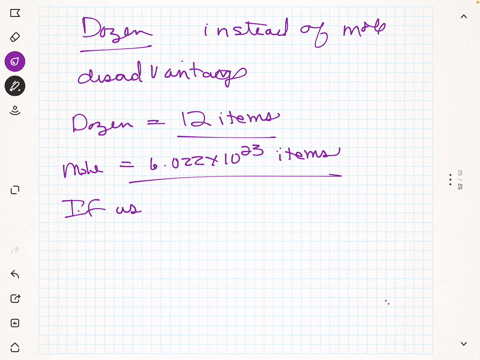 Dozen instead of mole
disadvantage
Dozen = 12 items
Mole = 6.022×10²³ items
If us
52 / 52